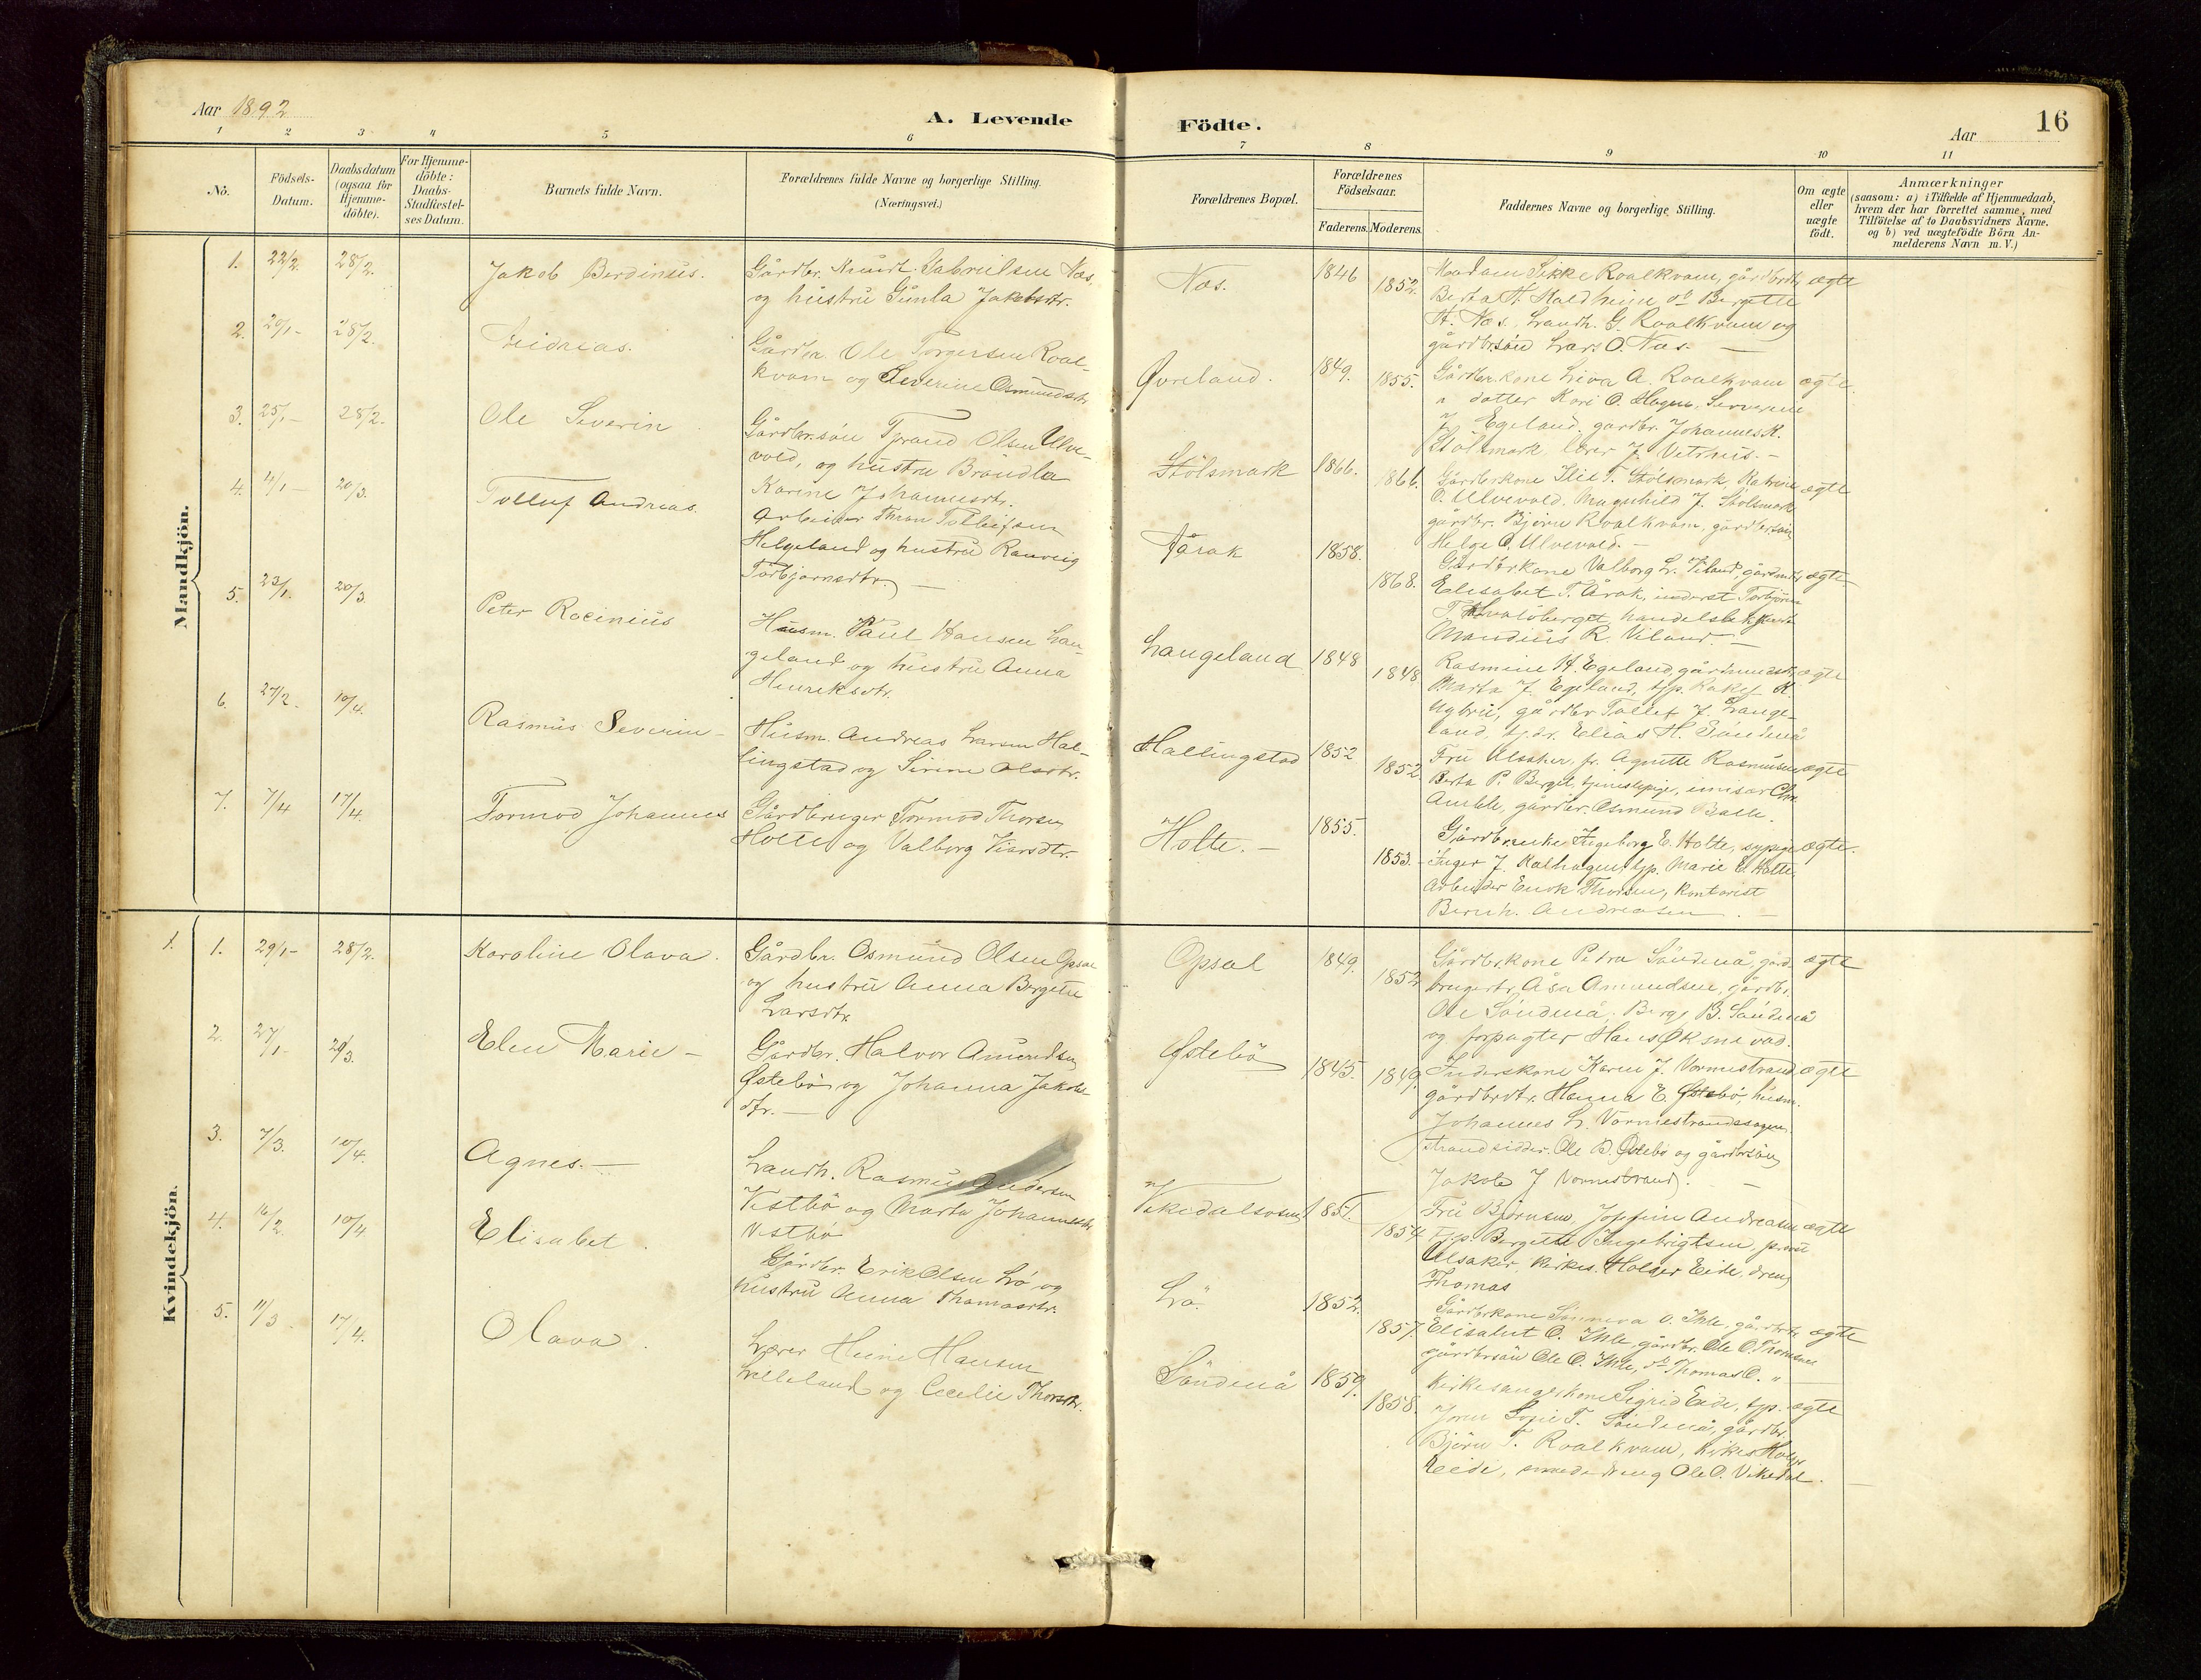 Aar 1892
A. Levende
Födte.
Aar
16
1 2 3 4 5 6 7 8 9 10 11
Nô.
Födsels-
Datum.
Daabsdatum
(ogsaa for
Hjemme-
döbte).
For Hjemme-
döbte:
Daabs-
Stadfæstel-
ses Datum.
Barnets fulde Navn.
Forældrenes fulde Navne og borgerlige Stilling.
(Næringsvei.)
Forældrenes Bopæl.
Forældrenes
Födselsaar.
Faderens. Moderens.
Faddernes Navne og borgerlige Stilling.
Om ægte
eller
uægte
födt.
Anmærkninger
(saasom: a) i Tilfælde af Hjemmedaab,
hvem der har forrettet samme, med
Tilföielse af to Daabsvidners Navne.
og b) ved uægtefödte Börn An-
melderens Navn m. V.)
Mandkjön.
1. 22/2. 28/2. Jakob Berdinus.
Gårdbr. Knud Gabrielsen Næs,
og hustru Gunla Jakobsdtr.
Næs. 1846 1852.
Madam Sikke Roalkvam, gårdbrdtr.
Berta H. Haldheim do Bergitte
H. Næs, Landh. G. Roalkvam og
gårdbrsön Lars O. Næs. —
ægte
2. 20/1- 28/2. Andreas.
Gårdbr. Ole Torgersen Roal-
kvam og Severine Osmundsdtr
Øvreland. 1849. 1855.
Gårdbr.kone Liva A. Roalkvam
datter Kari O. Severine
J. Egeland, gårdbr. Johannes K.
Stølsmark, lærer J. Vetrhus. -
ægte
3. 25/1- 28/2. Ole Severin
Gårdbr.sön Tprand Olsen Ulve-
vold, og hustru Brandla
Karine Johannesdtr.
Stölsmark 1866. 1866.
Gårdbrkone Ilie T. Stølsmark, Katrine
O. Ulvevold, Magnhild J. Stölsmark
gårdbr. Björn Roalkvam, gårdbrsön
Helge O. Ulvevold. -
ægte
4. 4/1- 20/3. Tollef Andreas.
Arbeider Thran Tolleifsen
Helgeland og hustru Ranveig
Torbjørnsdtr. —
Aårak 1858. 1868.
Gårdbrkone Valborg L. Viland, gårdmdtr
Elisabet T. Årak, inderst Torbjörn
T. Hvalöberget, handelsbetjent
Mandius R. Viland —
ægte
5. 23/1. 20/3. Peter Racinius
Husm. Paul Hansen Lan-
geland og hustru Anna
Henriksdtr.
Langeland 1848 1848
Rasmine H. Egeland, gårdmdsdtr
Marta J. Egeland, tjp. Rakel K.
gårdbr Tollef J. Lange-
land, tj.dr. Elias H. Söndenå
ægte
6. 27/2. 10/4. Rasmus Severin -
Husm. Andreas Larsen Hal-
lingstad og Sirine Olsdtr.
Hallingstad 1852 1852
Fru Alsaker, fr. Agnette Rasmussen
Berta P. Berget, tjenestepige, Chr.
Amble, gårdbr. Osmund Bakke.
ægte
7. 7/4 17/4. Tormod Johannes
Gårdbruger Tormod Thorsen
Holte og Valborg Viarsdtr.
Holte. — 1855. 1853.
Gårdbr.enke Ingeborg E. Holte, sypige
Inger J. Kalhagen, tjp. Marie E. Holte,
Arbeider Enok Thorsen, Kontorist
Bernh. Andreasen. —
ægte.
Kvindekjön.
1. 1. 29/1- 28/2. Karoline Olava.
Gårdbr. Osmund Olsen Opsal
og hustru Anna Bergitte
Larsdtr.
Opsal 1849. 1852
Gårdbr.kone Petra Söndenå, gård-
brugerdtr. Åsa Amundsen, gårdbr.
Ole Söndenå, Berge B. Söndenå
og forpagter Hans Øksnevad.
ægte
2. 27/1- 20/3. Elen Marie -
Gårdbr. Halvor Amundsen
Østebö og Johanna Jakobs-
dtr. —
Østebö 1845. 1849.
Inderskone Karen J. Vormestrand,
gårdbrdtr. Hanna E. Østebö, husm.
Johannes L. Vormestrandssagen,
strandsidder Ole B. Østebö og gårdbrsön
Jakob J Vormestrand. —
ægte
3. 7/3. 10/4. Agnes. —
Landh. Rasmus Andersen
Vestbö og Marta Johannesdtr
Vestbö
Vikedalsosen 1851. 1854
Fru Björnsen, Josefine Andreasen
Tjp. Bergitte Ingebrigtsen, provst
Alsaker, kirkes. Holger Eide, dreng
Thomas
ægte
4. 16/2. 10/4 Elisabet.
Gårdbr. Erik Olsen Lö og
hustru Anna Thomasdtr.
Lö. 1852. 1857.
Gårdbrkone Sönneva O. Ihle, gårdbrdtr
Elisabet O. Ihle, gårdbr. Ole O. Thomsen
gårdbrsön Ole O. Ihle, do Thomas O. "
ægte
5. 11/3. 17/4. Olava.
Lærer Heine Hansen
Lilleland og Cecelie Thorsdtr.
Söndenå 1859. 1858.
Kirkesangerkone Sigrid Eide, tjp.
Joren Sofie T. Söndenå, gårdbr.
Björn T. Roalkvam, kirkes. Holger
Eide, smededreng Ole O. Vikedal.
ægte